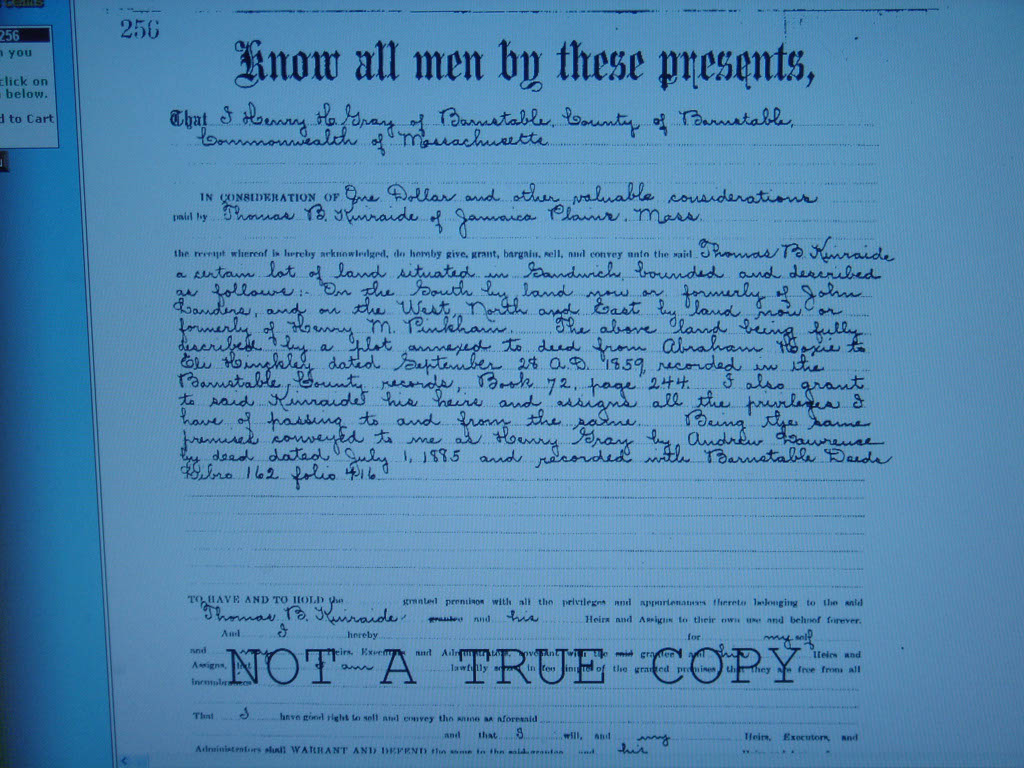 256
256
you
click on
below.
d to Cart
Know all men by these presents,
That I Henry H. Gray of Barnstable, County of Barnstable,
Commonwealth of Massachusetts
IN CONSIDERATION OF One Dollar and other valuable considerations
paid by Thomas B. Kinraide of Jamaica Plains, Mass.
the receipt whereof is hereby acknowledged, do hereby give, grant, bargain, sell, and convey unto the said Thomas B. Kinraide
a certain lot of land situated in Sandwich, bounded and described
as follows:- On the South by land now or formerly of John
Landers, and on the West, North and East by land now or
formerly of Henry M. Pinkham. The above land being fully
described by a plot annexed to deed from Abraham Hoxie to
Eli Hinckley dated September 28 A.D. 1859, recorded in the
Barnstable County records, Book 72, page 244. I also grant
to said Kinraide his heirs and assigns all the privileges I
have of passing to and from the same. Being the same
premises conveyed to me as Henry Gray by Andrew Lawrence
by deed dated July 1, 1885 and recorded with Barnstable Deeds
Libro 162 folio 416
TO HAVE AND TO HOLD the granted premises with all the privileges and appurtenances thereto belonging to the said
Thomas B. Kinraide grantee and his Heirs and Assigns to their own use and behoof forever.
And I hereby for my self
and my Heirs, Executors and Administrators, covenant with the said grantee and his Heirs and
Assigns, that I am lawfully seized in fee simple of the granted premises, that they are free from all
incumbrances
NOT A TRUE COPY
That I have good right to sell and convey the same as aforesaid
and that I will, and my Heirs, Executors, and
Administrators shall WARRANT AND DEFEND the same to the said grantee and his